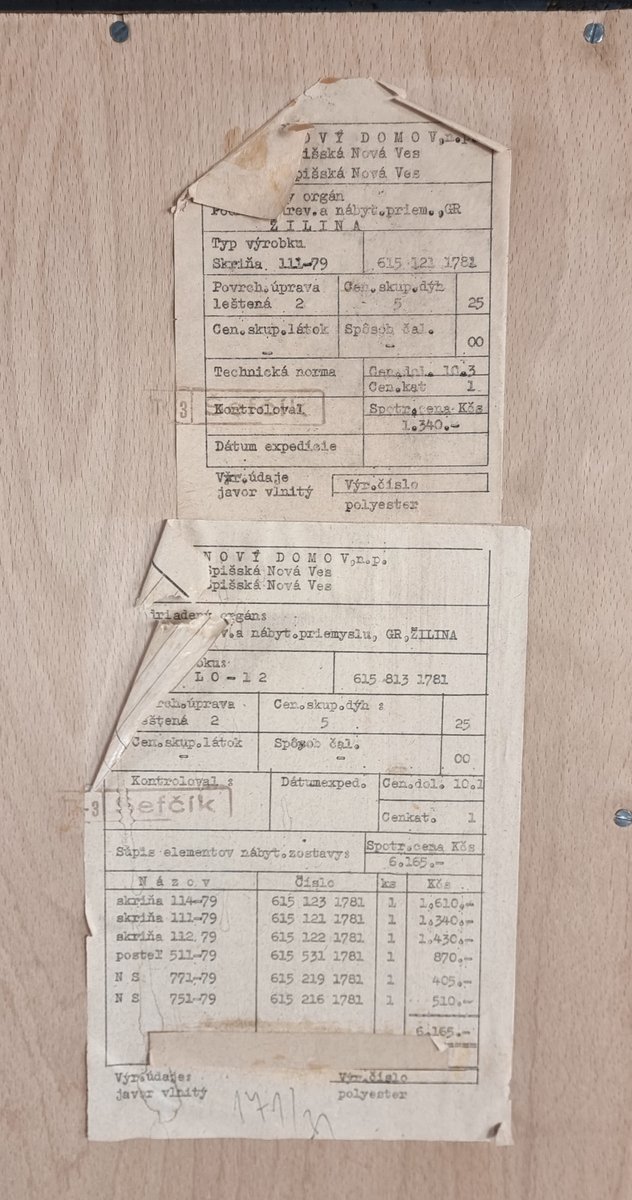 OVÝ DOMOV,n.p.
pišská Nová Ves
pišská Nová Ves
y orgán
rev.a nábyt.priem.,GR
ŽILINA
Typ výrobku
Skriňa 111-79 615 121 1781
Povrch.úprava Cen.skup.dýh
leštená 2 5 25
Cen.skup.látok Spôsob čal.
- - 00
Technická norma Cen.dol. 10.3
Cen.kat 1
3 Šefčík
Kontroloval Spotr.cena Kčs
1.340.-
Dátum expedície
Výr.údaje Výr.číslo
javor vlnitý polyester
NOVÝ DOMOV,n.p.
Spišská Nová Ves
Spišská Nová Ves
driadený orgán:
v.a nábyt.priemyslu, GR,ŽILINA
obku:
LO-12 615 813 1781
rch.úprava Cen.skup.dýh :
leštená 2 5 25
Cen.skup.látok Spôsob čal.
- - 00
Kontroloval : Dátumexped. Cen.dol. 10.1
-3 Šefčík
Cenkat. 1
Súpis elementov nábyt.zostavy: Spotr.cena Kčs
6.165.-
Názov Číslo ks Kčs
skriňa 114-79 615 123 1781 1 1,610.-
skriňa 111-79 615 121 1781 1 1.340.-
skriňa 112.79 615 122 1781 1 1.430.-
posteľ 511-79 615 531 1781 1 870.-
N S 771-79 615 219 1781 1 405.-
N S 751-79 615 216 1781 1 510.-
6.165.-
Výr.údaje: Výr.číslo
javor vlnitý polyester